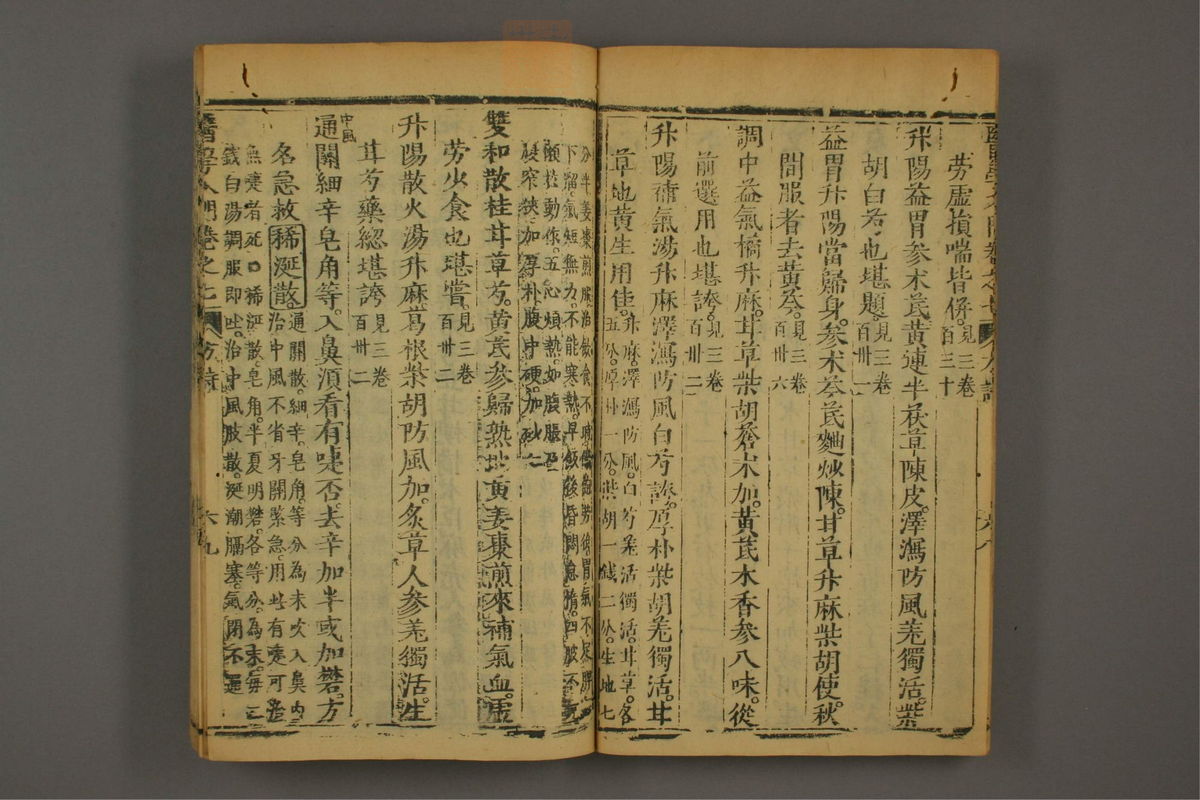 勞虛損喘皆併。見三卷百三十
升陽益胃參朮芪黃連半茯草陳皮。澤瀉防風羌獨活。柴
胡白芍也堪題。見三卷百卅一
益胃升陽當歸身。參朮芩芪麯炒陳。甘草升麻柴胡使。秋
間服者去黃芩。見三卷百卅六
調中益氣橘升麻。甘草柴胡蒼朮加。黃芪木香參八味。從
前選用也堪誇。見三卷百卅二
升陽補氣湯升麻澤瀉防風白芍誇。厚朴柴胡羌獨活。甘
草地黃生用佳。升麻。澤瀉防風。白芍羌活獨活。甘草。各五分。厚朴一分。柴胡一錢二分。生地七
分半姜棗煎服。治飲食不
下溜。氣短無力。不能寒熱。早飯後昏悶怠惰。四肢不
煩熱。如腹脹及
腹窄狹。加厚朴。腹中硬。加砂仁
雙和散桂甘草芍。黃芪參歸熟地黃姜棗煎來補氣血。虛
勞少食也堪嘗。見三卷百卅二
升陽散火湯升麻葛根柴胡防風加。炙草人參羌獨活。生
甘芍藥總堪誇見三卷百卅二
中風
通關細辛皂角等。入鼻須看有嚏否。去辛加半或加礬。方
名急救稀涎散。通關散。細辛。皂角。等分為末吹入鼻內治中風不省牙關緊急。用此有嚏可治
無嚏者死〇稀涎散。皂角。半夏明礬。各等分。為末。每三
錢白湯調服即吐。治中風肢散。涎潮膈塞。氣閉不通
六九